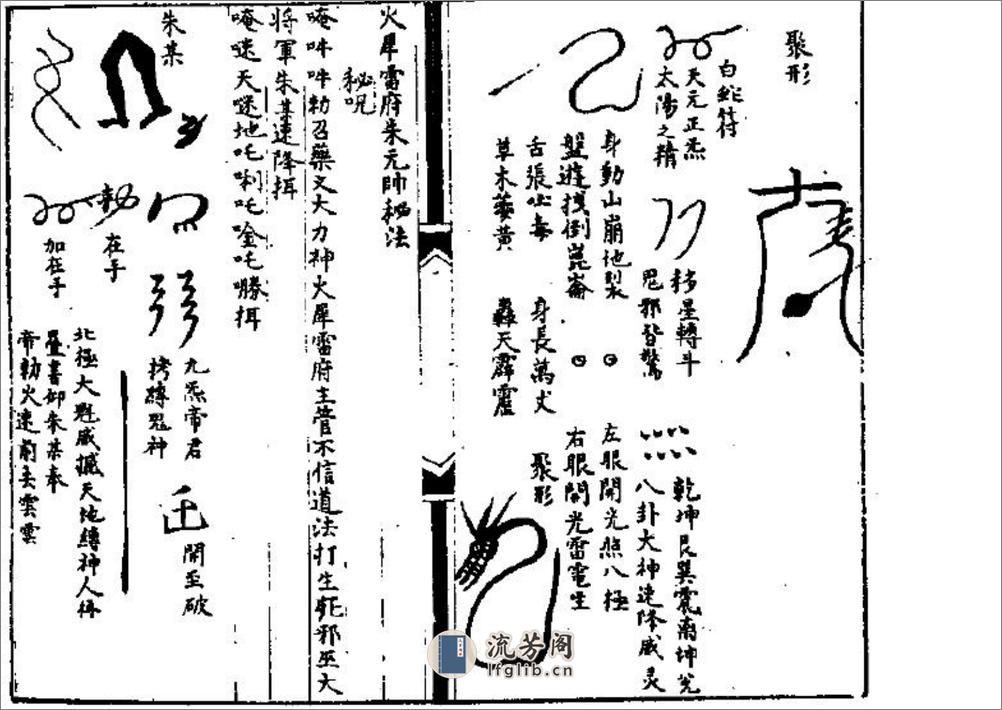 聚形
白蛇符
天元正炁
太陽之精
移星轉斗
鬼邪皆驚
乾坤艮巽震离坤兌
八卦大神速降威灵
身動山崩地裂
盤遊拔倒崑崙
左眼開光照八極
右眼開光雷電生
舌張吐毒
草木萎黃
身長萬丈
轟天霹靂
聚形
火犀雷府朱元帥秘法
秘咒
唵吽吽勅召藥叉大力神火犀雷府主管不信道法打生死邪巫大
將軍朱某速降揖
唵迷天嗟地吒唎吒唫吒𠾱揖
朱某
勅
在手
加在手
九炁帝君
拷縛鬼神
開至破
北極大魁威撼天地縛神人
疊書仰朱某奉
帝勅火速前去雲雲
流芳阁
lfglib.cn